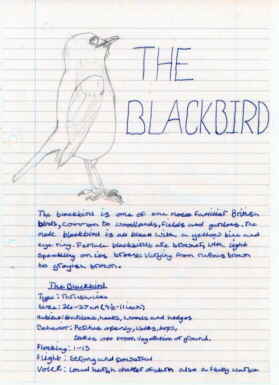 THE
BLACKBIRD
The blackbird is one of our most familiar British
birds, common to woodlands, fields and gardens. The
male blackbird is all black with a yellow bill and
eye ring. Female blackbirds are brown, with light
speckling on its breast varying from rufous brown
to greyish brown.
The Blackbird
Type:
Size: 24-27 cm (9½-11 inch)
Habitat: woods and hedges
Behavior: Perches openly, hops,
takes
Flocking: 1-15
Flight: Strong and
Voice: Loud harsh chatter of alarm also a